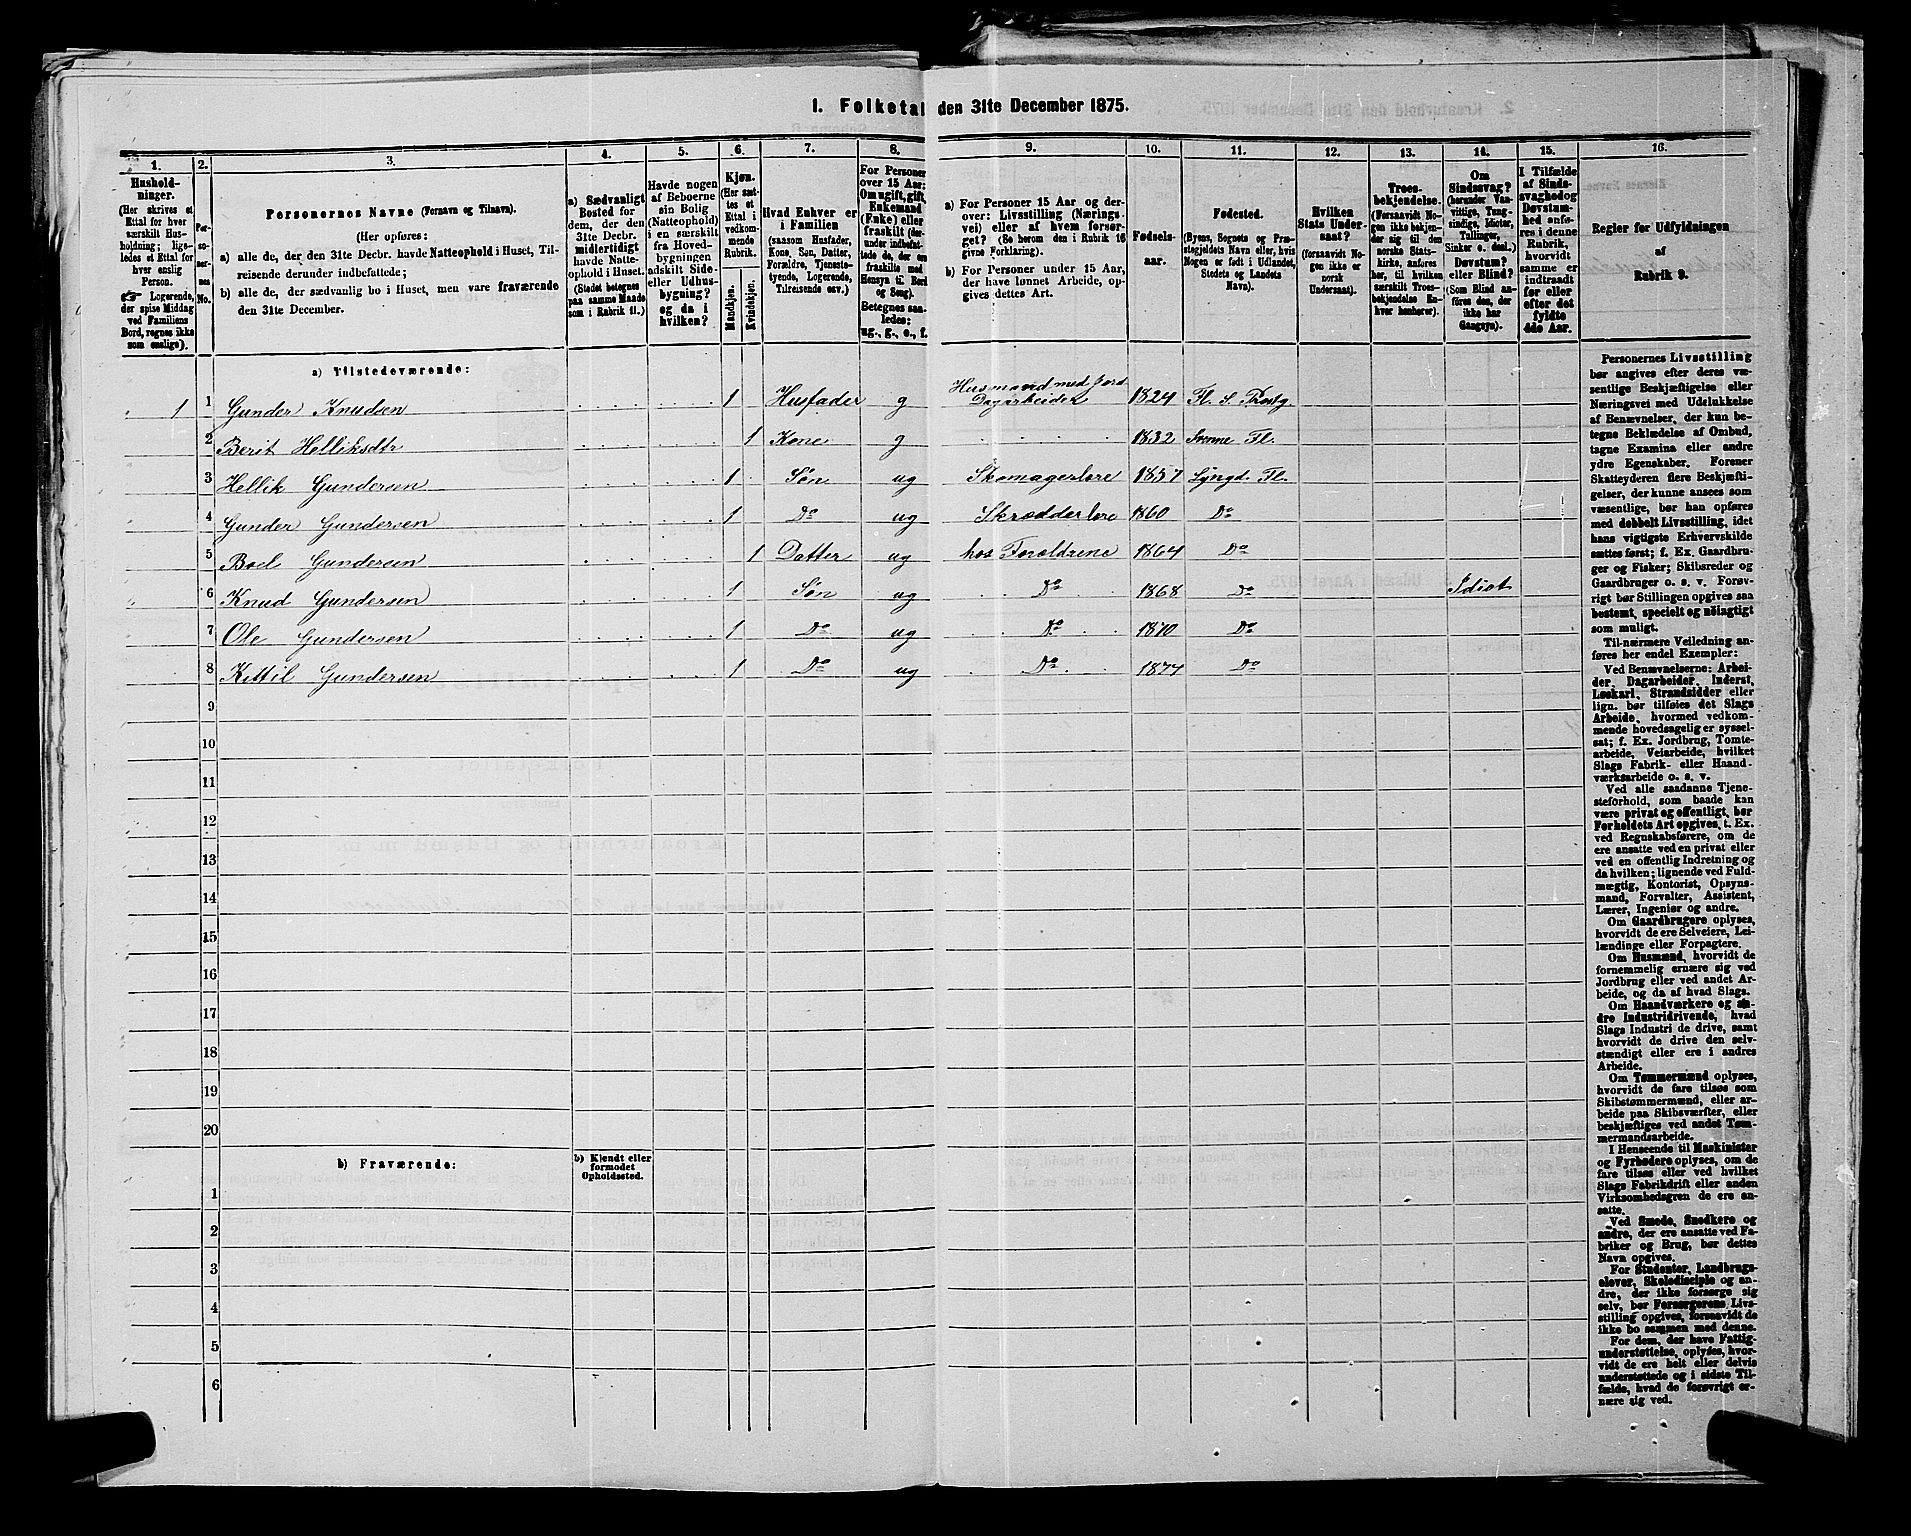 1. Folketal den 31te December 1875.
1. 2. 3. 4. 5. 6. 7. 8. 9. 10. 11. 12. 13. 14. 15. 16.
Hushold-
ninger.
(Her skrives et
Ettal for hver
særskilt Hus-
holdning; lige-
ledes et Ettal for
hver enslig
Person.
☞ Logerende,
der spise Middag
ved Familiens
Bord, regnes ikke
som enslige).
Per-
so-
ner-
nes
No.
Personernes Navne (Fornavn og Tilnavn).
(Her opføres:
a) alle de, der den 31te Decbr. havde Natteophold i Huset, Til-
reisende derunder indbefattede;
b) alle de, der sædvanlig bo i Huset, men vare fraværende
den 31te December.
a) Sædvanligt
Bosted for
dem, der den
31te Decbr.
midlertidigt
havde Natte-
ophold i Huset.
(Stedet betegnes
paa samme Maade
som i Rubrik 11.)
Havde nogen
af Beboerne
sin Bolig
(Natteophold)
i en særskilt
fra Hoved-
bygningen
adskilt Side-
eller Udhus-
bygning?
og da i
hvilken?
Kjøn.
(Her sæt-
tes et
Ettal i
vedkom-
mende
Rubrik.
Mandkjøn.
Kvindekjøn.
Hvad Enhver er
i Familien
(saasom Husfader,
Kone, Søn, Datter,
Forældre, Tjeneste-
tyende, Logerende,
Tilreisende osv.)
For Personer
over 15 Aar:
Om ugift, gift,
Enkemand
(Enke) eller
fraskilt (der-
under indbefat-
tede de, der ere
fraskilte med
Hensyn til Bord
og Seng).
Betegnes saa-
ledes:
ug., g., e., f.
a) For Personer 15 Aar og der-
over: Livsstilling (Nærings-
vei) eller af hvem forsør-
get? (Se herom den i Rubrik 16
givne Forklaring).
b) For Personer under 15 Aar,
der have lønnet Arbeide, op-
gives dettes Art.
Fødsels-
aar.
Fødested.
(Byens, Sognets og Præ-
stegjeldets Navn eller, hvis
Nogen er født i Udlandet,
Stedets og Landets
Navn).
Hvilken
Stats Under-
saat?
(forsaavidt No-
gen ikke er
norsk
Undersaat).
Troes-
bekjendelse.
(Forsaavidt No-
gen ikke beken-
der sig til den
norske Stats-
kirke, anføres
her, til hvilken
særskilt Troes-
bekjendelse En-
hver henhører).
Om
Sindssvag?
(herunder Van-
vittige, Tung-
sindige, Idioter,
Tullinger,
Sinker o. desl.)
Døvstum?
eller Blind?
(Som Blind an-
føres den, der
ikke har
Gangsyn).
I Tilfælde
af Sinds-
svaghed og
Døvstum-
hed anfø-
res i denne
Rubrik,
hvorvidt
samme er
indtraadt
før eller
efter det
fyldte
4de Aar.
Regler for Udfyldningen
af
Rubrik 9.
a) Tilstedeværende:
1 1 Gunder Knudsen 1 Husfader g Husmand med Jord Dagarbeider 1824 Fl. S. Prestg.
2 Berit Helliksdtr 1 Kone g 1832 Svenne Fl.
3 Hellik Gundersen 1 Søn ug Skomagerlære 1857 Lyngd. Fl.
4 Gunder Gundersen 1 Do ug Skrædderlære 1860 Do
5 Boel Gundersen 1 Datter ug hos Forældrene 1864 Do
6 Knud Gundersen 1 Søn ug Do 1868 Do Idiot
7 Ole Gundersen 1 Do ug Do 1870 Do
8 Kittil Gundersen 1 Do ug Do 1874 Do
9
10
11
12
13
14
15
16
17
18
19
20
b) Fraværende:
b) Kjendt eller
formodet
Opholdssted.
1
2
3
4
5
6
Personernes Livsstilling
bør angives efter deres væ-
sentlige Beskjæftigelse eller
Næringsvei med Udelukkelse
af Benævnelser, der kun be-
tegne Beklædelse af Ombud,
tagne Examina eller andre
ydre Egenskaber. Forener
Skatteyderen flere Beskjæfti-
gelser, der kunne ansees som
væsentlige, bør han opføres
med dobbelt Livsstilling, idet
hans vigtigste Erhvervskilde
sættes først; f. Ex. Gaardbru-
ger og Fisker; Skibsreder og
Gaardbruger o. s. v. Forøv-
rigt bør Stillingen opgives saa
bestemt, specielt og nøiagtigt
som muligt.
Til nærmere Veiledning an-
føres her endel Exempler:
Ved Benævnelserne: Arbei-
der, Dagarbeider, Inderst,
Løskarl, Strandsidder eller
lign. bør tilføies det Slags
Arbeide, hvormed vedkom-
mende hovedsagelig er syssel-
sat; f. Ex. Jordbrug, Tomte-
arbeide, Veiarbeide, hvilket
Slags Fabrik- eller Haand-
værksarbeide o. s. v.
Ved alle saadanne Tjene-
steforhold, som baade kan
være privat og offentligt, bør
Forholdets Art opgives, t. Ex.
ved Regnskabsførere, om de
ere ansatte ved en privat eller
ved en offentlig Indretning og
da hvilken; lignende ved Fuld-
mægtig, Kontorist, Opsyns-
mand, Forvalter, Assistent,
Lærer, Ingeniør og andre.
Om Gaardbrugere oplyses,
hvorvidt de ere Selveiere, Lei-
lændinge eller Forpagtere.
Om Husmænd, hvorvidt de
fornemmelig ernære sig ved
Jordbrug eller ved andet Ar-
beide, og da af hvad Slags.
Om Haandværkere og an-
dre Industridrivende, hvad
Slags Industri de drive, samt
hvorvidt de drive den selv-
stændigt eller ere i andres
Arbeide.
Om Tømmermænd oplyses,
hvorvidt de fare tilsøs som
Skibstømmermænd, eller ar-
beide paa Skibsværfter, eller
beskjæftiges ved andet Tøm-
mermandsarbeide.
I Henseende til Maskinister
og Fyrbødere oplyses, om de
fare tilsøs eller ved hvilket
Slags Fabrikdrift eller anden
Virksomhedsgren de ere an-
satte.
Ved Smede, Snedkere og
andre, der ere ansatte ved Fa-
briker og Brug, bør dettes
Navn opgives.
For Studenter, Landbrugs-
elever, Skoledisciple og an-
dre, der ikke forsørge sig
selv, bør Forsørgerens Livs-
stilling opgives, forsaavidt de
ikke bo sammen med denne.
For dem, der have Fattig-
understøttelse, oplyses, hvor-
vidt de ere helt eller delvis
understøttede og i sidste Til-
fælde, hvad de forøvrigt er-
nære sig ved.